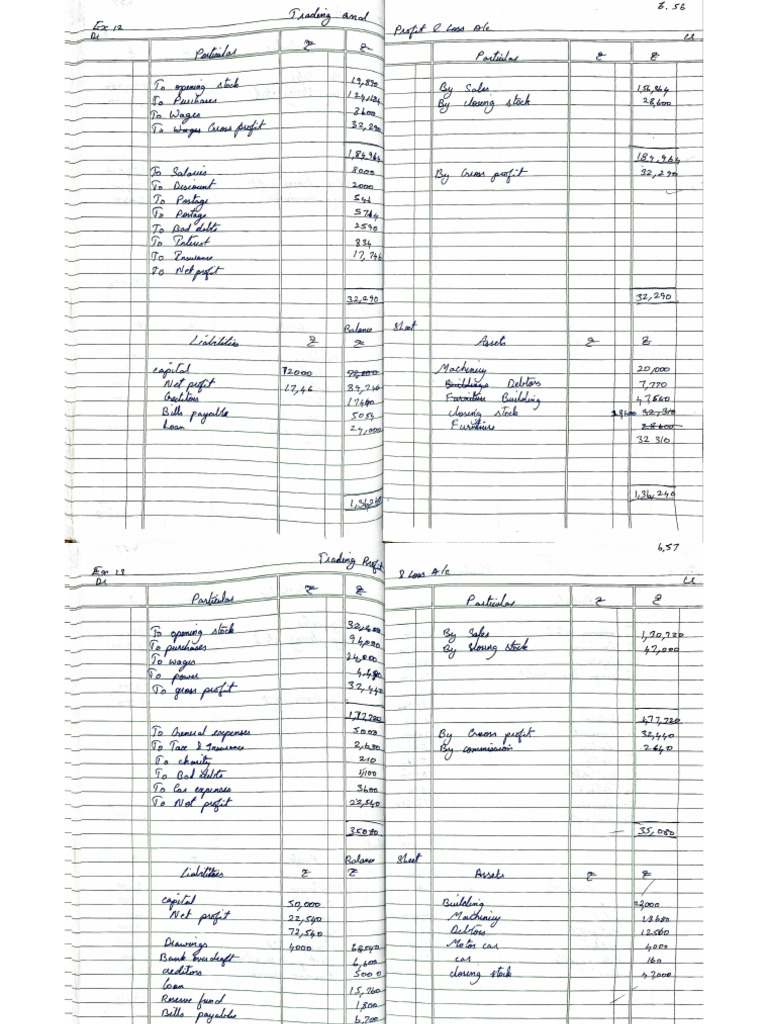 6.56
Ex 12 Trading and Profit & Loss A/c
Dr Cr
Particulars ₹ ₹ Particulars ₹ ₹
To opening stock 19,890 By Sales 1,56,364
To Purchases By closing stock 28,600
To Wages 3600
To Wages Gross profit 32,290
1,84,964 184,964
To Salaries 8000 By Gross profit 32,290
To Discount 2000
To Postage
To Postage
To Bad debts
To Interest
To Insurance
To Net profit
32,290 32,290
Balance Sheet
Liabilities ₹ ₹ Assets ₹ ₹
capital 72000 Machinery 20,000
Net profit 17,46 Buildings Debtors 7,770
Creditors Furniture Building
Bills payable closing stock 28,600 32,310
Loan 24,000 Furniture 28,600
32 310
1,36,240 1,36,240
6.57
Ex 13 Trading Profit & Loss A/c
Dr Cr
Particulars ₹ ₹ Particulars ₹ ₹
To opening stock By Sales 1,30,720
To purchases By closing stock 47,000
To wages
To power
To gross profit 32,440
1,77,720 1,77,720
To General expenses 5000 By Gross profit 32,440
To Tax & Insurance By commission 2640
To charity 210
To Bad Debts 1,100
To Car expenses 3600
To Net profit 22,540
35080 35,080
Balance Sheet
Liabilities ₹ ₹ Assets ₹ ₹
capital 50,000 Building
Net profit 22,540 Machinery
72,540 Debtors 12560
Drawings 4000 68540 Motor car 4000
Bank overdraft 6,600 car 160
creditors 5000 closing stock 47,000
Loan 15,760
Reserve fund 1,800
Bills payable 6,700